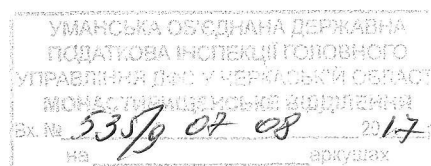 УМАНСЬКА ОБ'ЄДНАНА ДЕРЖАВНА
ПОДАТКОВА ІНСПЕКЦІЇ ГОЛОВНОГО
УПРАВЛІННЯ ДФС У ЧЕРКАСЬКІЙ ОБЛАСТ
МОНАСТИРИЩЕНСЬКЕ ВІДДІЛЕННЯ
Вх. № 535/9 07 08 2017
на аркушах